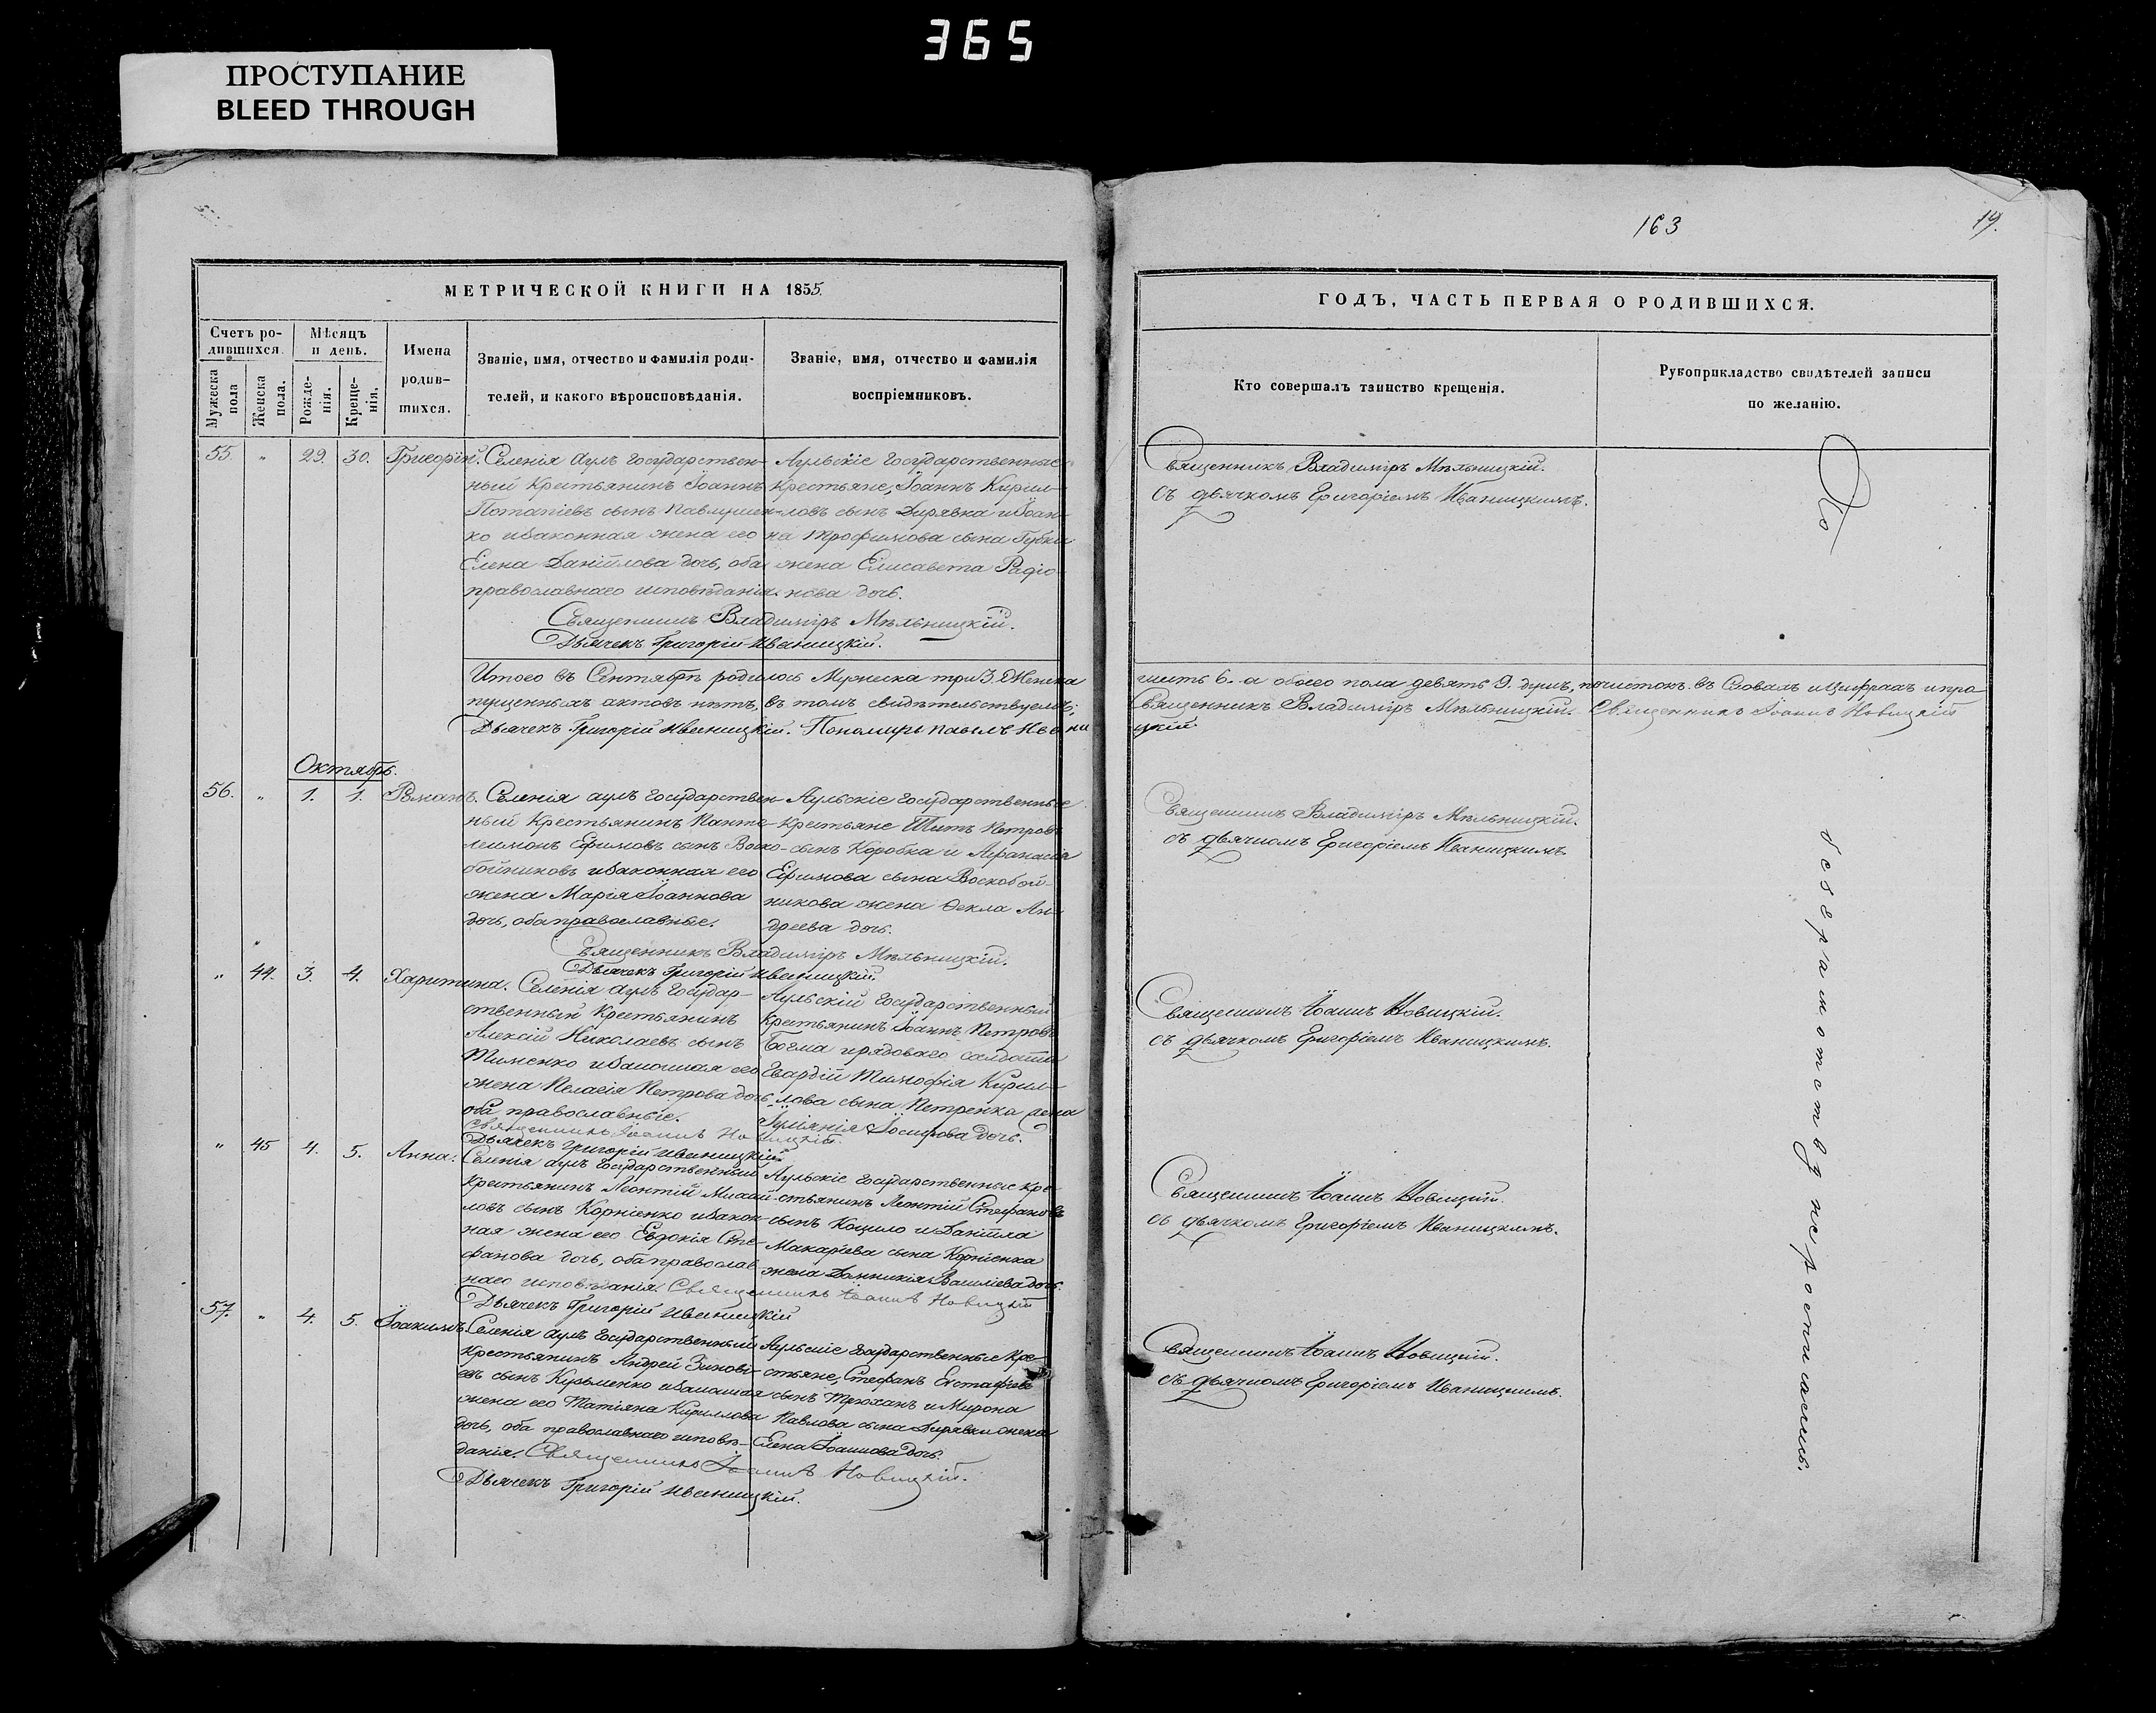 365
ПРОСТУПАНИЕ
BLEED THROUGH
МЕТРИЧЕСКОЙ КНИГИ НА 1855.
Счетъ ро-
дившихся.
Мѣсяцъ
и день.
Мужеска
пола
Женска
пола.
Рожде-
нія.
Креще-
нія.
Имена
родив-
шихся.
Званіе, имя, отчество и фамилія роди-
телей, и какого вѣроисповѣданія.
Званіе, имя, отчество и фамилія
воспріемниковъ.
55. " 29. 30. Григорій.
Селенія Аулъ государствен-
ный крестьянинъ Іоаннъ
Потапіевъ сынъ Павлушен-
ко и законная жена его
Елена Даніилова дочь, оба
православнаго исповѣданія.
Аульскіе государственные
крестьяне, Іоаннъ Кирил-
ловъ сынъ Дирявка и Іоан-
на Трофимова сына Губки
жена Елисавета Радіо-
нова дочь.
Священникъ Владиміръ Мѣльницкій.
Дьячекъ Григорій Иваницкій.
Итого въ Сентябрѣ родилось Мужеска три 3. Женска
пущенныхъ актовъ нѣтъ, въ томъ свидѣтельствуемъ;
Дьячекъ Григорій Иваницкій. Пономарь Павелъ Ивани
Октябрь.
56. " 1. 1. Романъ.
Селенія Аулъ государствен-
ный крестьянинъ Панте-
леимонъ Ефимовъ сынъ Воско-
бойниковъ и законная его
жена Марія Іоаннова
дочь, оба православные.
Аульскіе государственные
крестьяне Титъ Петровъ
сынъ Коробка и Афанасія
Ефимова сына Воскобой-
никова жена Ѳекла Ан-
дреева дочь.
Священникъ Владиміръ Мѣльницкій.
Дьячекъ Григорій Иваницкій.
" 44. 3. 4. Харитина.
Селенія Аулъ государ-
ственный крестьянинъ
Алексій Николаевъ сынъ
Тименко и законная его
жена Пелагія Петрова дочь
оба православные.
Аульскій государственный
крестьянинъ Іоаннъ Петровъ
Богма и рядоваго солдата
Гвардіи Тимофія Кирил-
лова сына Петренка жена
Іуліянія Іосифова дочь.
Священникъ Іоаннъ Новицкій.
Дьячекъ Григорій Иваницкій.
" 45 4. 5. Анна.
Селенія Аулъ государственный
крестьянинъ Леонтій Михай-
ловъ сынъ Корніенко и закон-
ная жена его Евдокія Сте-
фанова дочь, оба православ-
наго исповѣданія.
Аульскіе государственные кре-
стьянинъ Леонтій Стефановъ
сынъ Коцило и Даніила
Макаріева сына Корніенка
жена Домникія Василіева дочь.
Священникъ Іоаннъ Новицкій
Дьячекъ Григорій Иваницкій
57. " 4. 5. Іоакимъ.
Селенія Аулъ государственный
крестьянинъ Андрей Зиновіе-
въ сынъ Кузьменко и законная
жена его Татіяна Кириллова
дочь, оба православнаго исповѣ-
данія.
Аульскіе государственные кре-
стьяне, Стефанъ Евстафіевъ
сынъ Трюханъ и Мирона
Павлова сына Дирявки жена
Елена Іоаннова дочь.
Священникъ Іоаннъ Новицкій.
Дьячекъ Григорій Иваницкій.
163
19.
ГОДЪ, ЧАСТЬ ПЕРВАЯ О РОДИВШИХСЯ.
Кто совершалъ таинство крещенія.
Рукоприкладство свидѣтелей записи
по желанію.
Священникъ Владиміръ Мѣльницкій.
съ дьячкомъ Григоріемъ Иваницкимъ.
шесть 6. а обоего пола девять 9. душъ, почистокъ въ Словахъ и Цифрахъ и про
Священникъ Владиміръ Мѣльницкій. Священникъ Іоаннъ Новицкій
цкій.
Священникъ Владиміръ Мѣльницкій.
съ дьячкомъ Григоріемъ Иваницкимъ.
Священникъ Іоаннъ Новицкій.
съ дьячкомъ Григоріемъ Иваницкимъ.
Священникъ Іоаннъ Новицкій.
съ дьячкомъ Григоріемъ Иваницкимъ.
Священникъ Іоаннъ Новицкій.
съ дьячкомъ Григоріемъ Иваницкимъ.
По
безграмотству нерасписались.